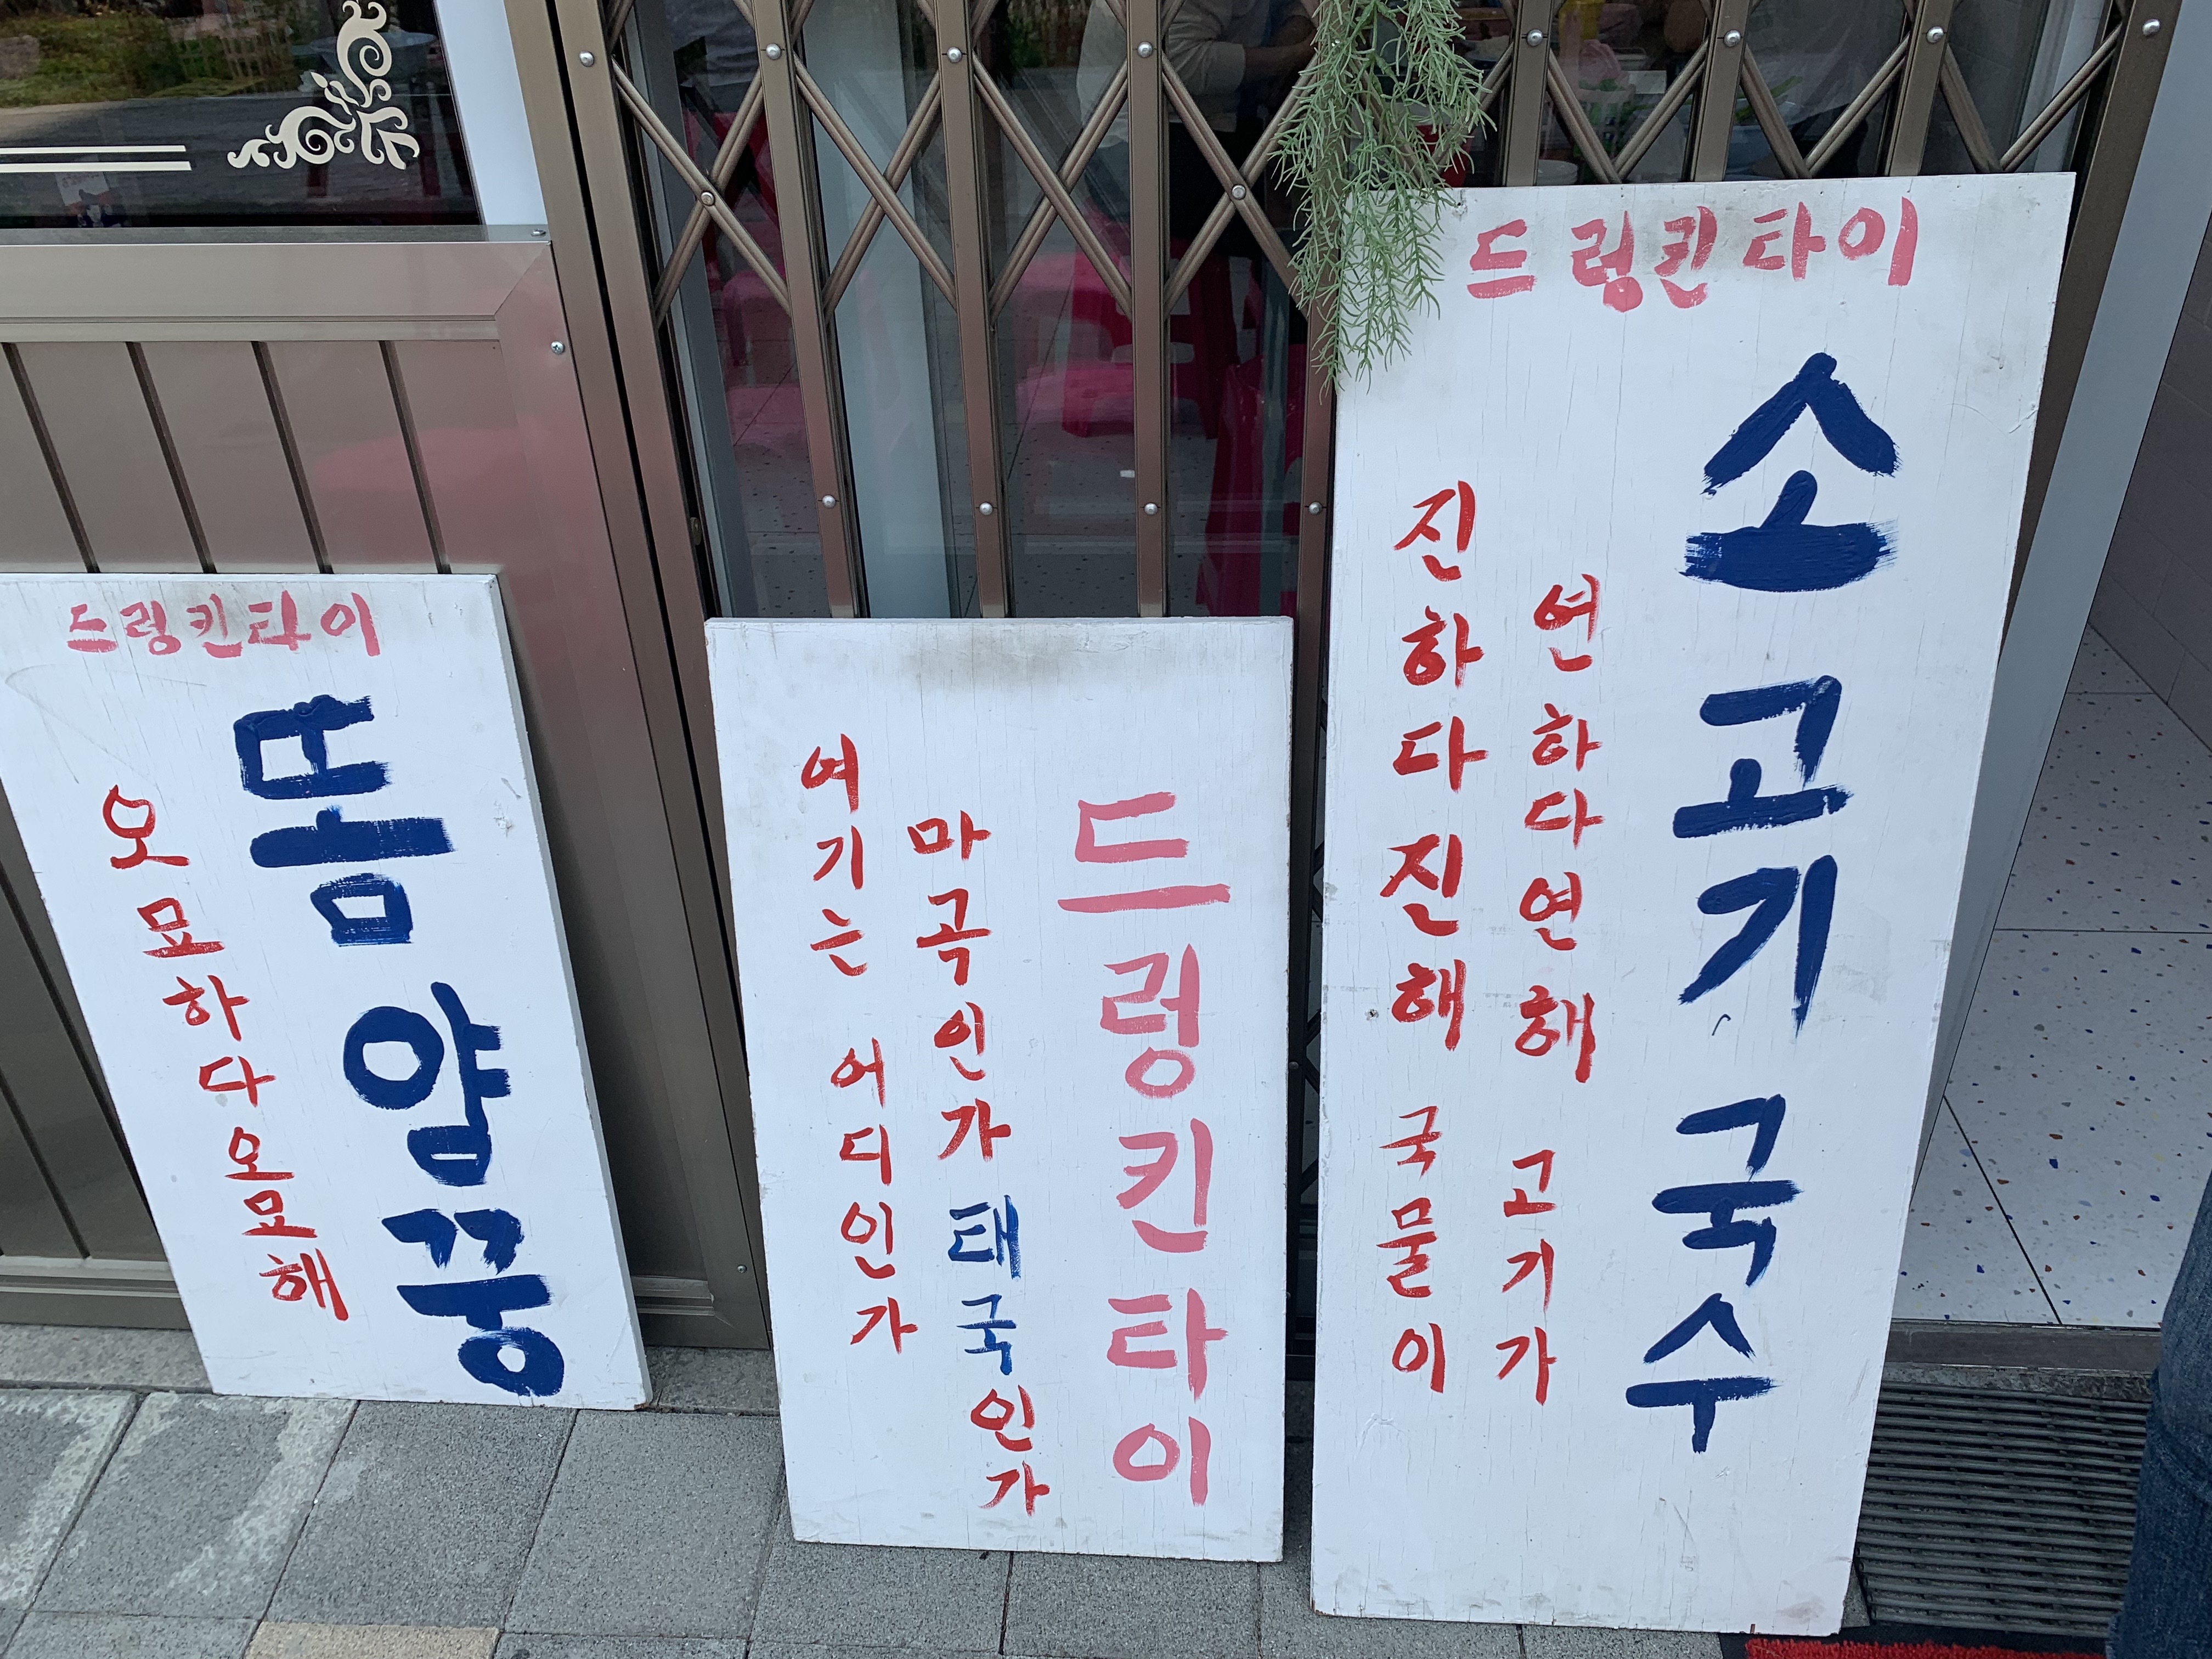 드렁킨타이
똠얌꿍
오묘하다오묘해
드렁킨타이
마곡인가 태국인가
여기는 어디인가
드렁킨타이
소고기 국수
연하다연해 고기가
진하다진해 국물이